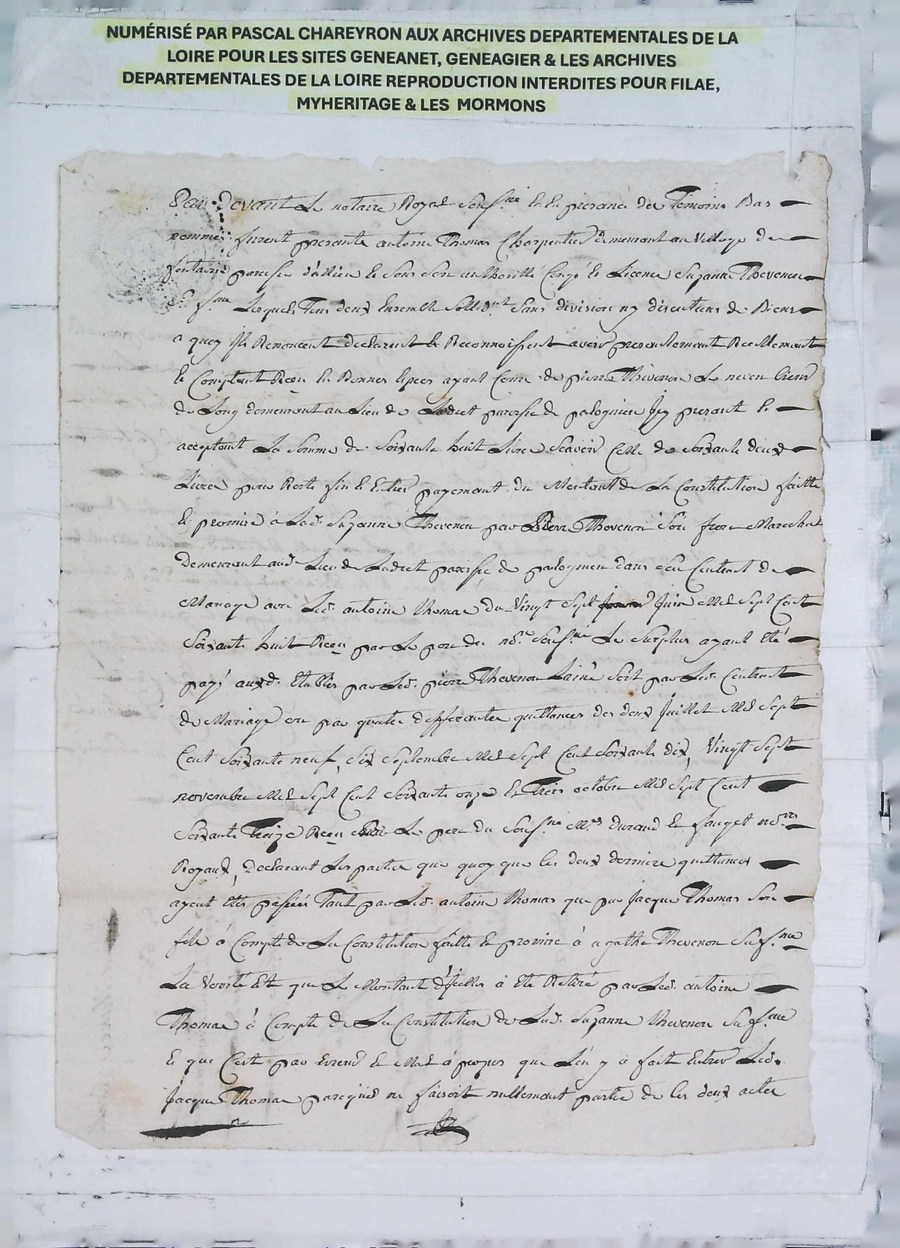 NUMÉRISÉ PAR PASCAL CHAREYRON AUX ARCHIVES DEPARTEMENTALES DE LA
LOIRE POUR LES SITES GENEANET, GENEAGIER & LES ARCHIVES
DEPARTEMENTALES DE LA LOIRE REPRODUCTION INTERDITES POUR FILAE,
MYHERITAGE & LES MORMONS
Par Devant Le notaire Royal Sousne Et En presance des Temoins Bas
nommés furent presants antoine Thomas Charpentier demeurant au Village de
fontaine paroisse et Sous Son authorité Congé et Licence Suzanne Thevenon
Sa fme Lesquels Tous deux Ensemble sollidt Sans division ny discution de Biens
a quoy ils Renoncent declarent et Reconnoissent avoir presentement Reellement
et Comptant Reçu En Bonnes Espéces ayant Cours de pierre Thevenon Le neveu
de Long demeurant au Lieu de paroisse de palognieu Icy present et
acceptant La Somme de Soixante huit Livres Scavoir Celle de Soixante deux
Livres pour Reste fin et Entier payement du Montant de La Constitution faitte
et promise à Lade Suzanne Thevenon par Pierre Thevenon Son frere Marechal
demeurant aud. Lieu de paroisse de palognieu dans Leu Contrat de
Mariage avec Led. antoine Thomas du Vingt Sept Juin Mil Sept Cent
Soixante huit Reçu par Le pere du nore Sousne Le Surplus ayant Eté
payé auxd. Etablis par Led. pierre Thevenon L'ainé Soit par Led. Contrat
de Mariage ou par quatre differentes quittances des deux Juillet Mil Sept
Cent Soixante neuf, Six Septembre Mil Sept Cent Soixante dix, Vingt Sept
novembre Mil Sept Cent Soixante onze Et Trois octobre Mil Sept Cent
Soixante Treize Reçu Le pere du Sousne Mes durand et fauget nores
Royaux, declarant Les parties que quoy que les deux derniere quittances
ayent Etés passées Tant par Led. antoine Thomas que par Jacque Thomas Son
fils à Compte de La Constitution faitte et promise à agathe Thevenon Sa fme
La Verité Est que Le Montant d'Icelles à Eté Retiré par Led. antoine
Thomas à Compte de La Constitution de Lade. Suzanne Thevenon Sa fme
Et que C'est par Erreur et Mal à propos que L'on y à fait Entrer Led.
Jacque Thomas parcequ'il ne faisoit nullement partie de les deux actes